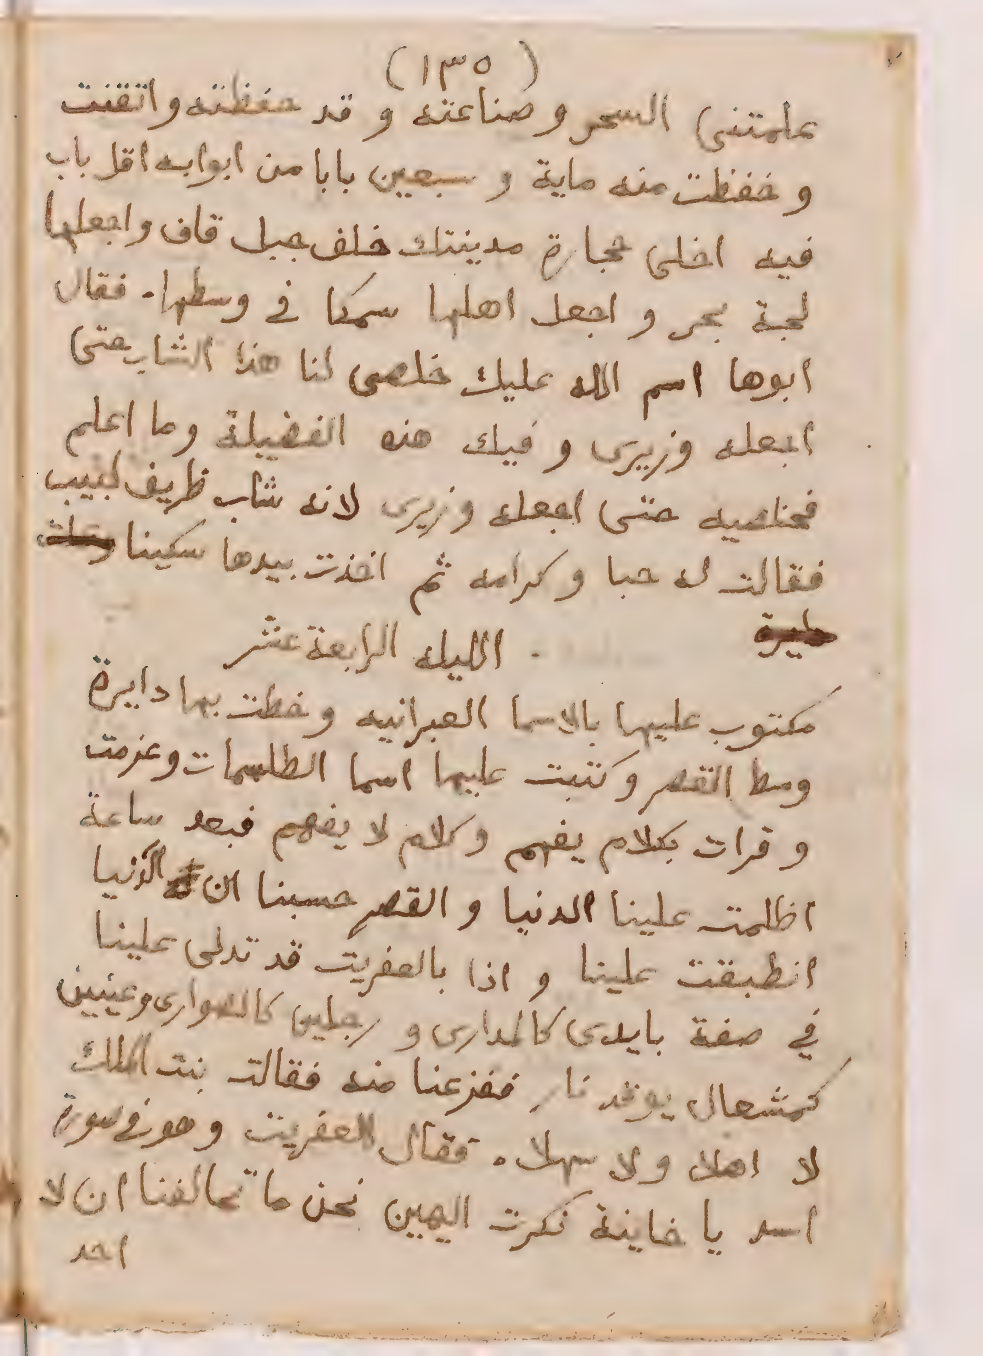 (١٣٥)
علمتنى السحر و صناعته و قد حفظته واتقنت
و حفظت منه ماية و سبعين بابا من ابوابه اقل باب
فيه اخلى حجارة مدينتك خلف جبل قاف واجعلها
لجة بحر و اجعل اهلها سمكا في وسطها. فقال
ابوها اسم الله عليك خلصى لنا هذا الشاب حتى
اجعله وزيرى و فيك هذه الفضيلة وما اعلم
فخلصيه حتى اجعله وزيرى لانه شاب ظريف لبيب
فقالت له حبا و كرامه ثم اخذت بيدها سكينا
الليله الرابعة عشر
مكتوب عليها بالاسما العبرانيه و خطت بها دايرة
وسط القصر و كتبت عليها اسما الطلسمات وعزمت
و قرات بكلام يفهم وكلام لا يفهم فبعد ساعة
اظلمت علينا الدنيا و القصر حسبنا ان الدنيا
انطبقت علينا و اذا بالعفريت قد تدلى علينا
في صفة بايدى كالمدارى و رجلين كالصوارى وعينين
كمشعال يوقد نار ففزعنا منه فقالت بنت الملك
لا اهلا ولا سهلا. فقال العفريت وهو في صورة
اسد يا خاينة نكرت اليمين نحن ما تحالفنا ان لا
احد